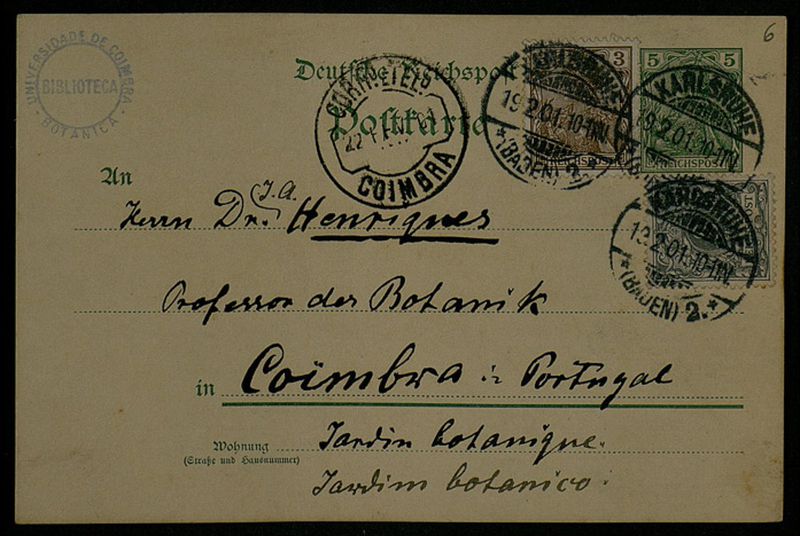 UNIVERSIDADE DE COIMBRA
BIBLIOTECA
BOTANICA
6
Deutsche Reichspost
Postkarte
3
REICHSPOST
5 5
REICHSPOST
KARLSRUHE
19.2.01.10-11V.
*(BADEN) 2.*
KARLSRUHE
19.2.01.10-11V.
KARLSRUHE
19.2.01.10-11V.
*(BADEN) 2.*
22
COIMBRA
An
Herrn Dr. J.A. Henriques
Professor der Botanik
in Coïmbra in Portugal
Wohnung
(Straße und Hausnummer)
Jardin botanique.
Jardim botanico.